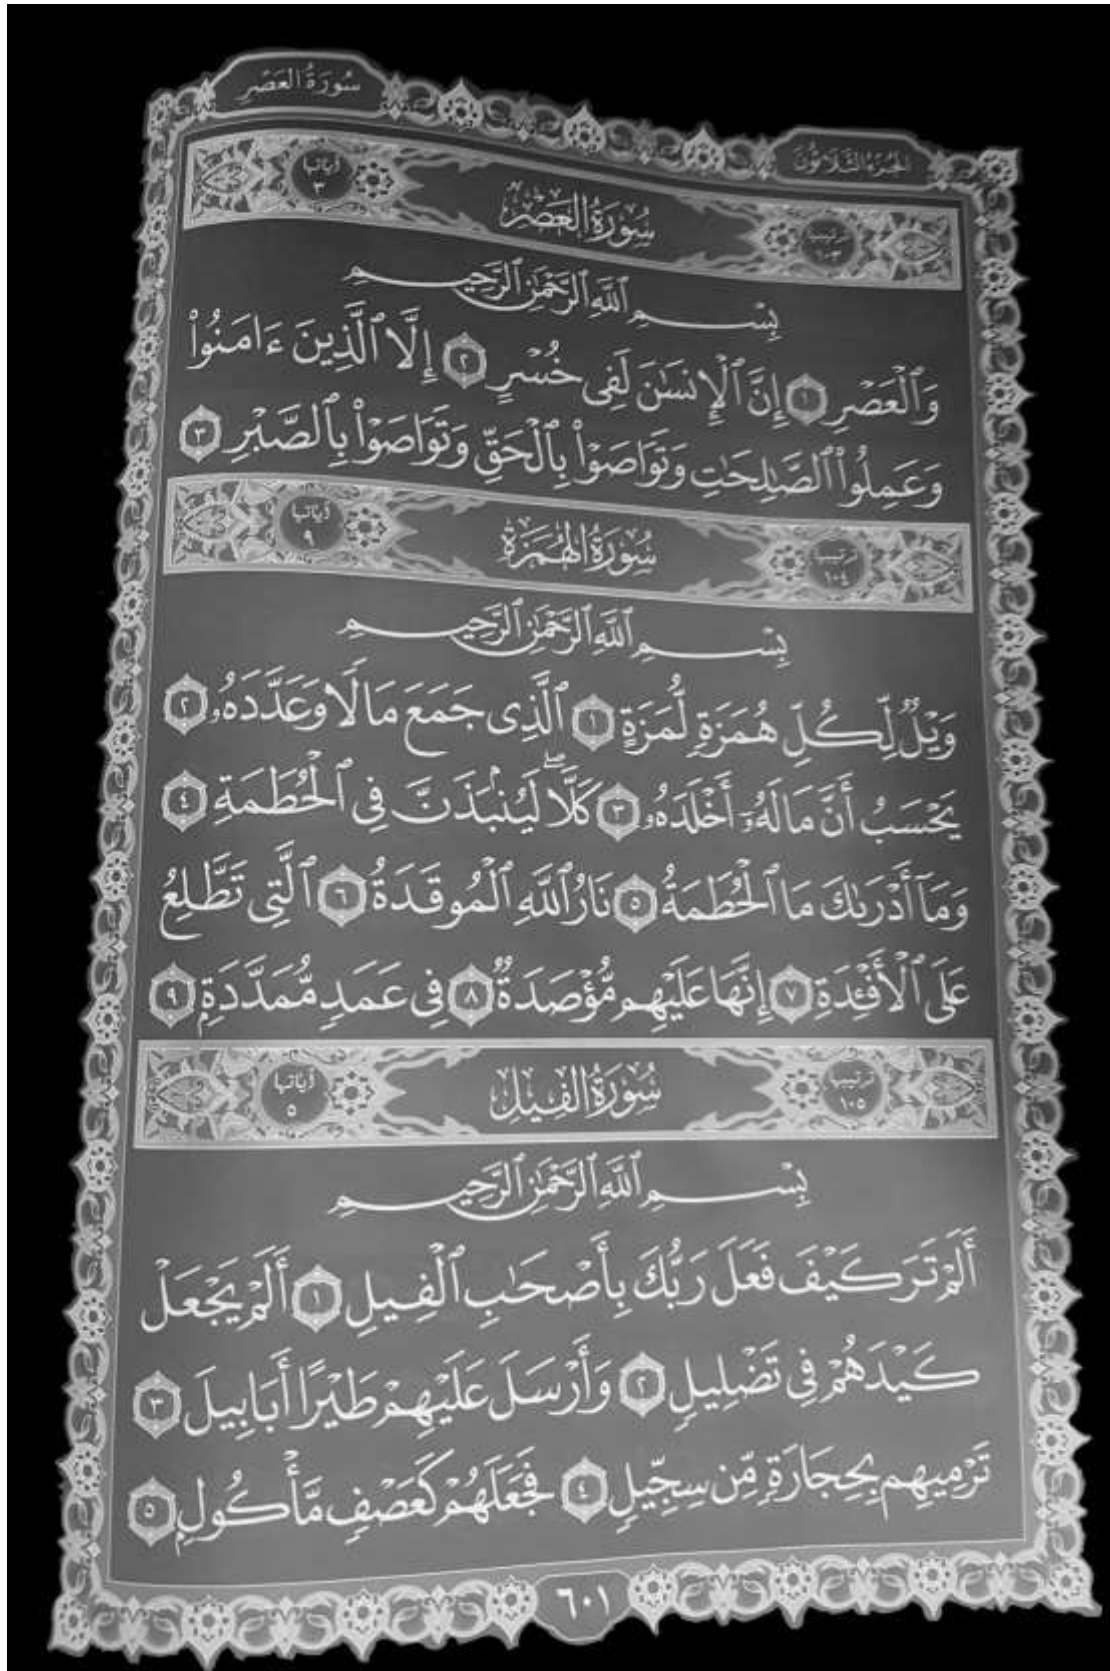 الجزء الثلاثون سورة العصر
ترتيبها ١٠٣ سُورَةُ العَصْرِ آياتها ٣
بِسْمِ ٱللَّهِ ٱلرَّحْمَٰنِ ٱلرَّحِيمِ
وَٱلْعَصْرِ ١ إِنَّ ٱلْإِنسَٰنَ لَفِى خُسْرٍ ٢ إِلَّا ٱلَّذِينَ ءَامَنُوا۟
وَعَمِلُوا۟ ٱلصَّٰلِحَٰتِ وَتَوَاصَوْا۟ بِٱلْحَقِّ وَتَوَاصَوْا۟ بِٱلصَّبْرِ ٣
ترتيبها ١٠٤ سُورَةُ الهُمَزَةِ آياتها ٩
بِسْمِ ٱللَّهِ ٱلرَّحْمَٰنِ ٱلرَّحِيمِ
وَيْلٌ لِّكُلِّ هُمَزَةٍ لُّمَزَةٍ ١ ٱلَّذِى جَمَعَ مَالًا وَعَدَّدَهُۥ ٢
يَحْسَبُ أَنَّ مَالَهُۥٓ أَخْلَدَهُۥ ٣ كَلَّا ۖ لَيُنۢبَذَنَّ فِى ٱلْحُطَمَةِ ٤
وَمَآ أَدْرَىٰكَ مَا ٱلْحُطَمَةُ ٥ نَارُ ٱللَّهِ ٱلْمُوقَدَةُ ٦ ٱلَّتِى تَطَّلِعُ
عَلَى ٱلْأَفْـِٔدَةِ ٧ إِنَّهَا عَلَيْهِم مُّؤْصَدَةٌ ٨ فِى عَمَدٍ مُّمَدَّدَةٍۭ ٩
ترتيبها ١٠٥ سُورَةُ الفِيلِ آياتها ٥
بِسْمِ ٱللَّهِ ٱلرَّحْمَٰنِ ٱلرَّحِيمِ
أَلَمْ تَرَ كَيْفَ فَعَلَ رَبُّكَ بِأَصْحَٰبِ ٱلْفِيلِ ١ أَلَمْ يَجْعَلْ
كَيْدَهُمْ فِى تَضْلِيلٍ ٢ وَأَرْسَلَ عَلَيْهِمْ طَيْرًا أَبَابِيلَ ٣
تَرْمِيهِم بِحِجَارَةٍ مِّن سِجِّيلٍ ٤ فَجَعَلَهُمْ كَعَصْفٍ مَّأْكُولٍۭ ٥
٦٠١